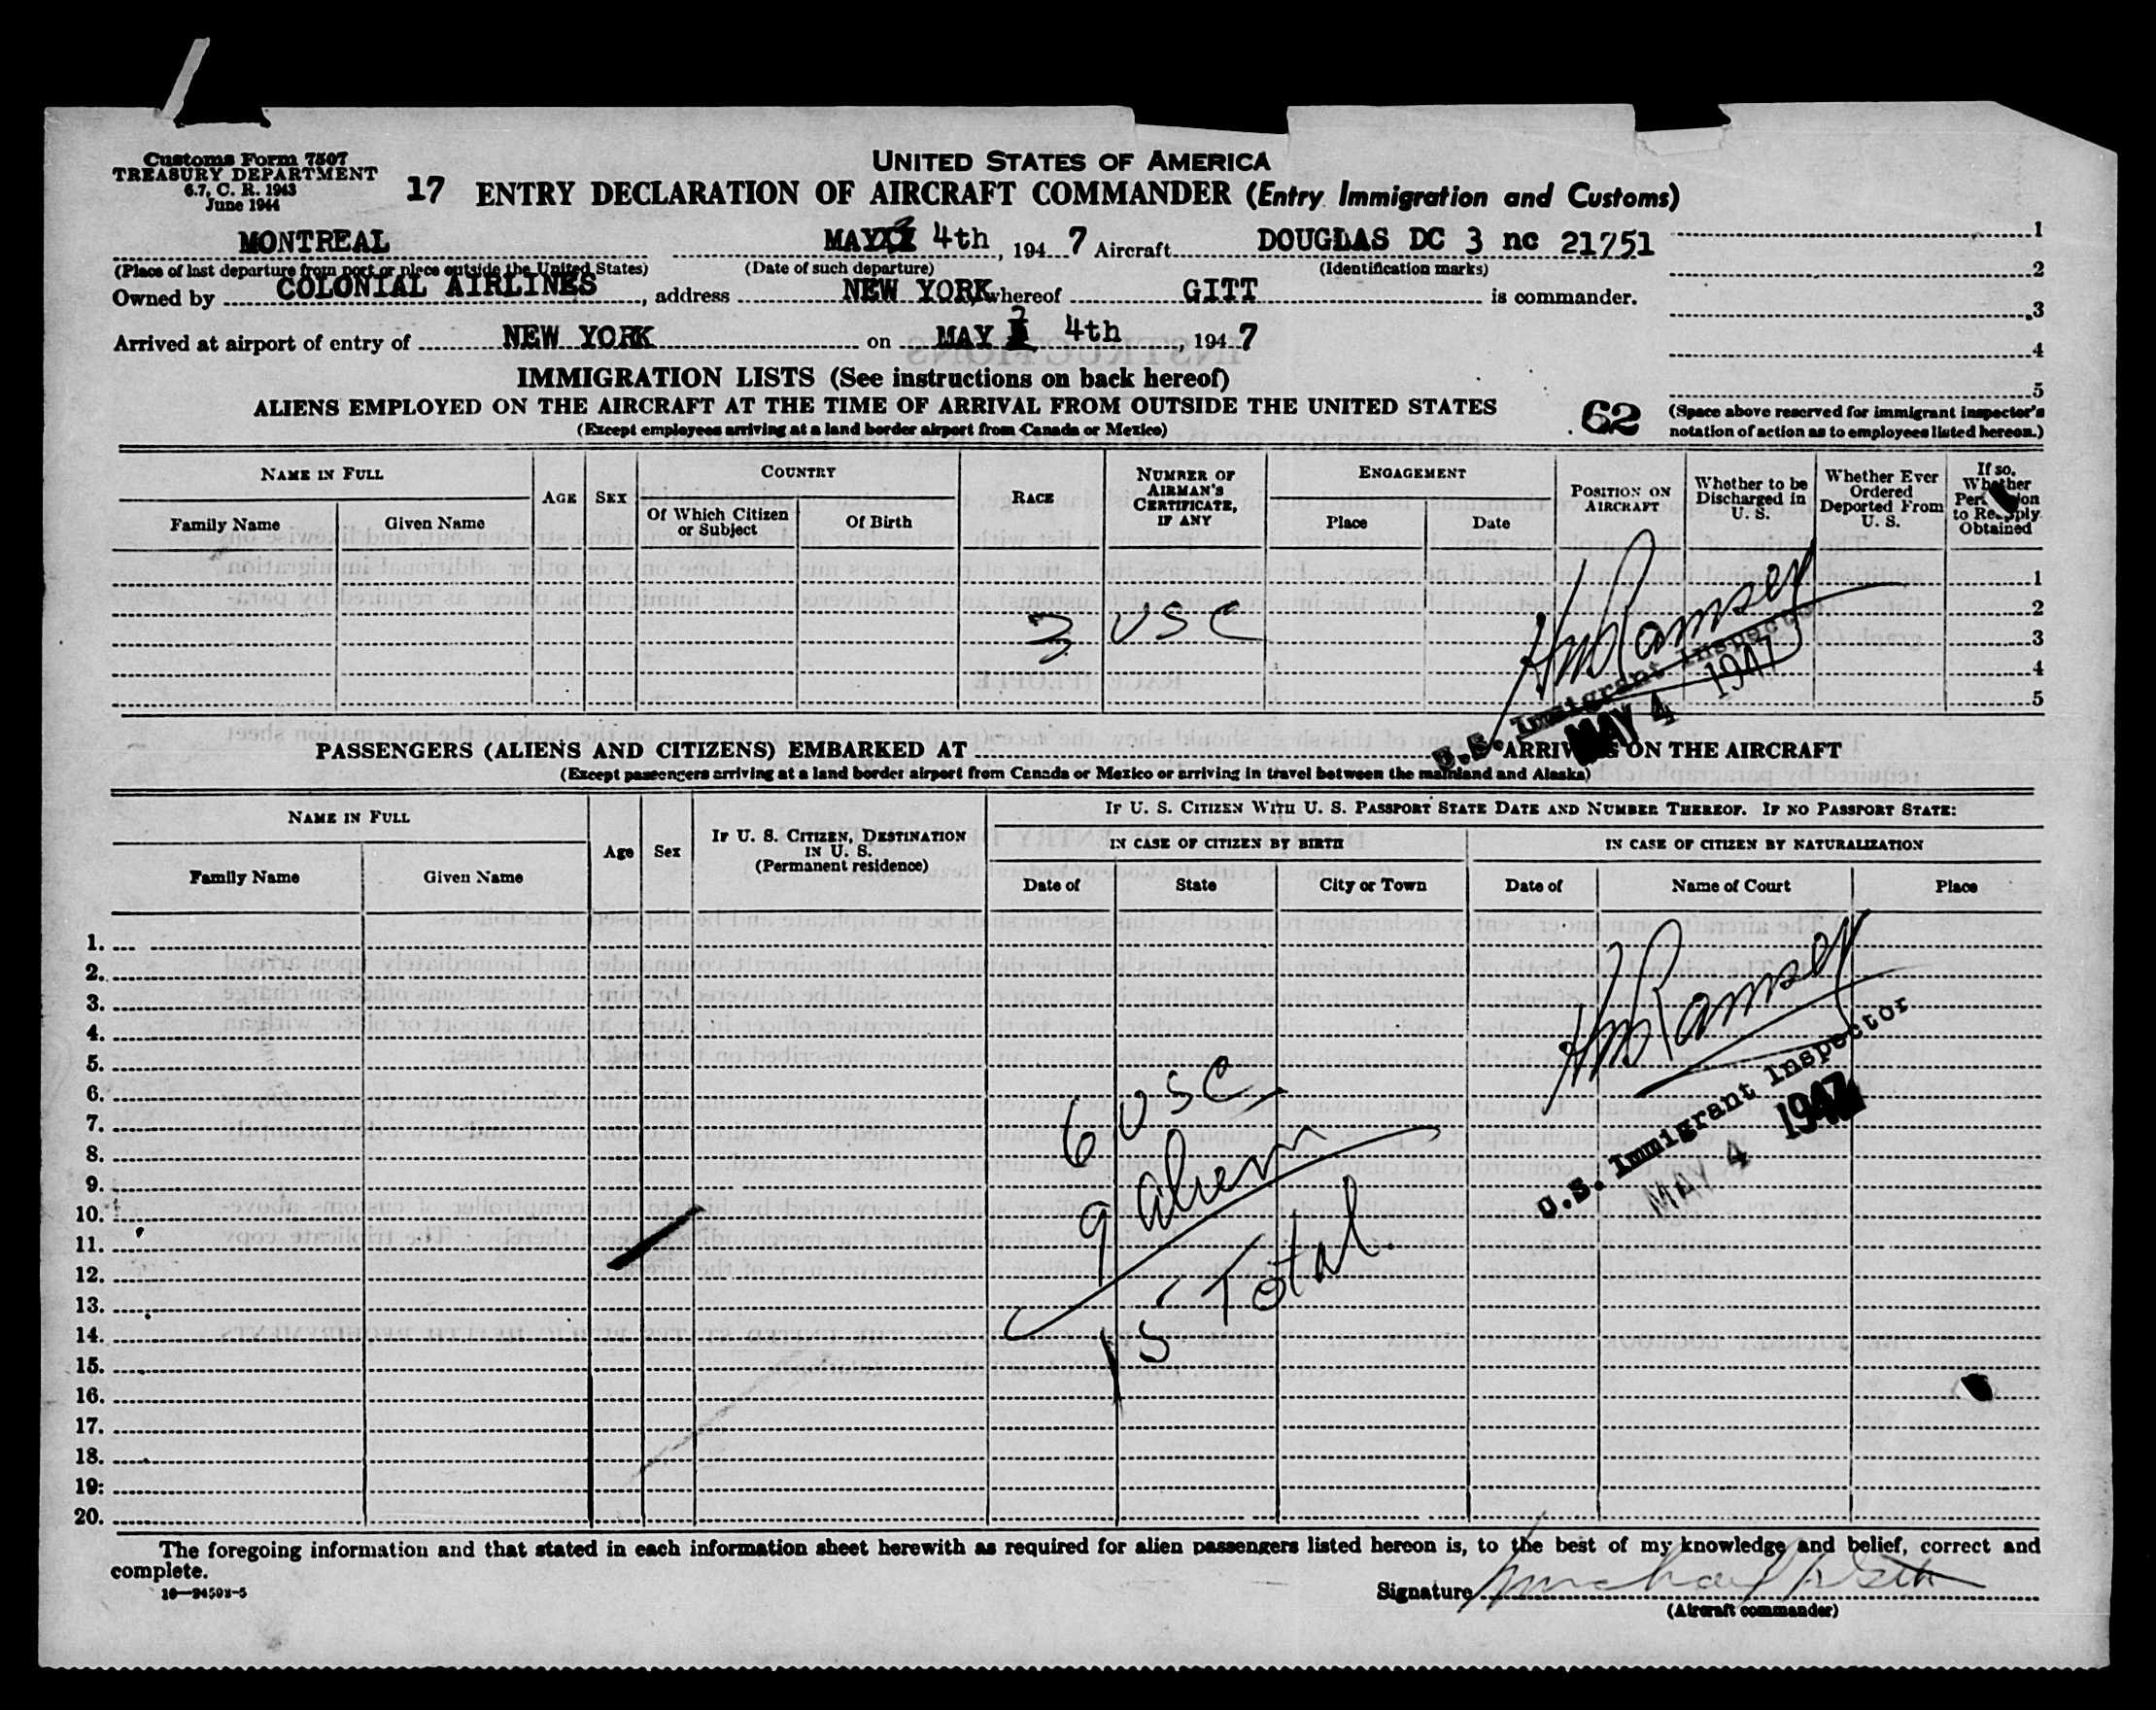 Customs Form 7507
TREASURY DEPARTMENT
6.7, C. R. 1943
June 1944
UNITED STATES OF AMERICA
17 ENTRY DECLARATION OF AIRCRAFT COMMANDER (Entry Immigration and Customs)
MONTREAL MAY 4th, 1947 Aircraft DOUGLAS DC 3 nc 21751 1
(Place of last departure from port or place outside the United States) (Date of such departure) (Identification marks) 2
Owned by COLONIAL AIRLINES, address NEW YORK, whereof GITT is commander.
3
Arrived at airport of entry of NEW YORK on MAY 4th, 1947
4
IMMIGRATION LISTS (See instructions on back hereof)
5
ALIENS EMPLOYED ON THE AIRCRAFT AT THE TIME OF ARRIVAL FROM OUTSIDE THE UNITED STATES
(Except employees arriving at a land border airport from Canada or Mexico)
62
(Space above reserved for immigrant inspector's
notation of action as to employees listed hereon.)
NAME IN FULL
Family Name Given Name
AGE SEX
COUNTRY
Of Which Citizen
or Subject
Of Birth
RACE
NUMBER OF
AIRMAN'S
CERTIFICATE,
IF ANY
ENGAGEMENT
Place Date
POSITION ON
AIRCRAFT
Whether to be
Discharged in
U. S.
Whether Ever
Ordered
Deported From
U. S.
If so,
Whether
to
Obtained
1
2
3 USC
3
4
5
HM Ramsey
U.S. Immigrant Inspector
MAY 4 1947
PASSENGERS (ALIENS AND CITIZENS) EMBARKED AT ARRIVING ON THE AIRCRAFT
(Except passengers arriving at a land border airport from Canada or Mexico or arriving in travel between the mainland and Alaska)
NAME IN FULL
Family Name Given Name
Age Sex
IF U. S. CITIZEN, DESTINATION
IN U. S.
(Permanent residence)
IF U. S. CITIZEN WITH U. S. PASSPORT STATE DATE AND NUMBER THEREOF. IF NO PASSPORT STATE:
IN CASE OF CITIZEN BY BIRTH IN CASE OF CITIZEN BY NATURALIZATION
Date of State City or Town Date of Name of Court Place
1.
2.
3.
4.
5.
6.
7.
8.
9.
10.
11.
12.
13.
14.
15.
16.
17.
18.
19.
20.
HM Ramsey
U.S. Immigrant Inspector
MAY 4 1947
6 USC
9 alien
15 Total.
The foregoing information and that stated in each information sheet herewith as required for alien passengers listed hereon is, to the best of my knowledge and belief, correct and
complete.
Signature
(Aircraft commander)